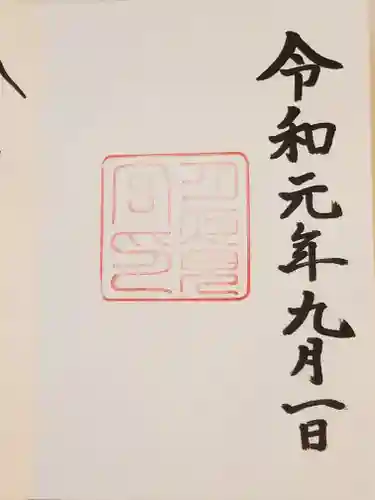 令和元年九月一日